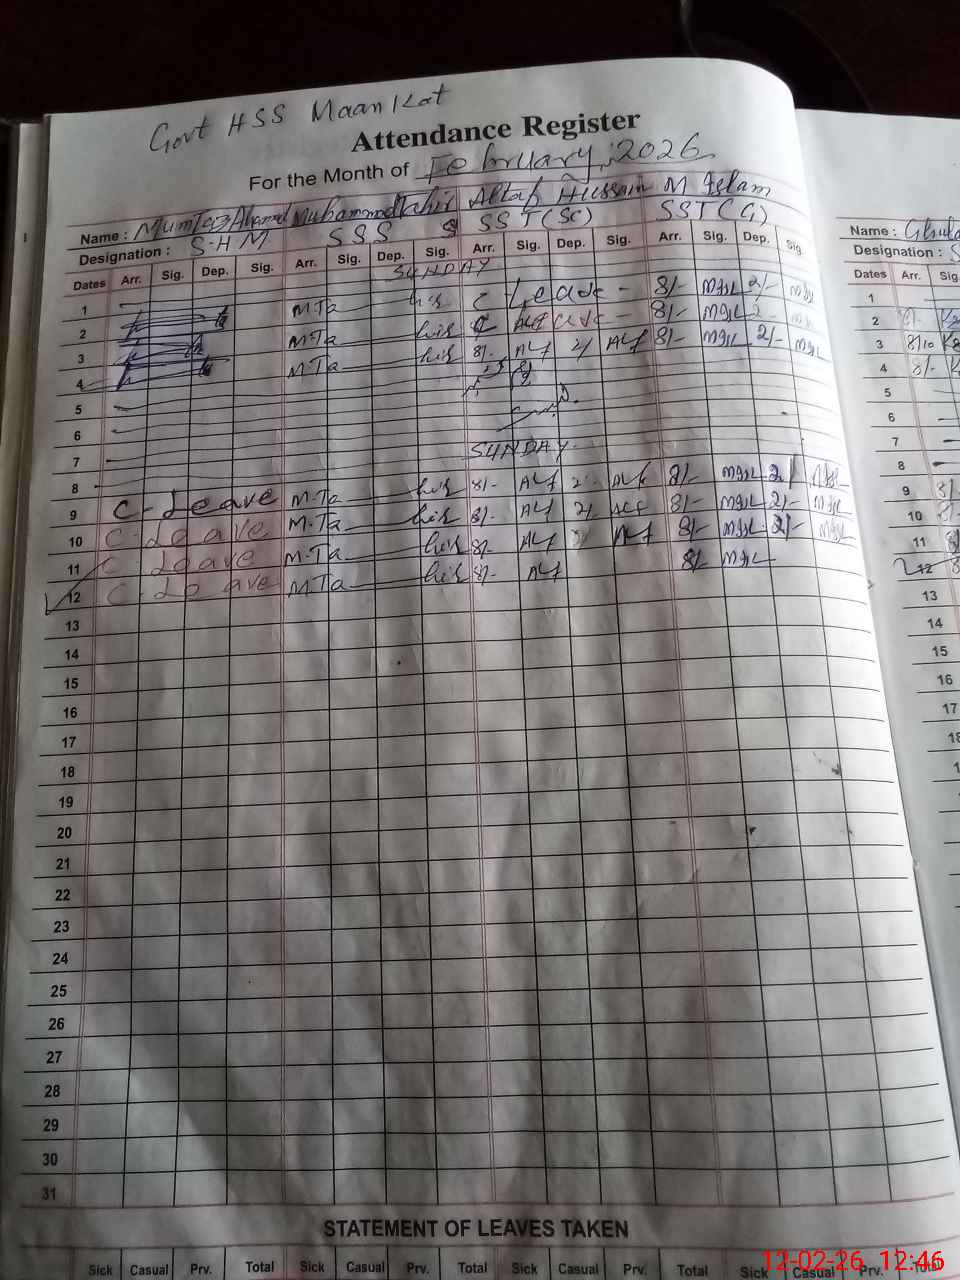 Govt HSS Maan Kot
Attendance Register
For the Month of February, 2026
Name : Mumtaz Ahmad Muhammad Tahir Altaf Hussain M Islam
Designation : S.H.M SSS SST (Sc) SST (G)
Dates Arr. Sig. Dep. Sig. Arr. Sig. Dep. Sig. Arr. Sig. Dep. Sig. Arr. Sig. Dep. Sig.
1 SUNDAY
2 M.Ta hir C Leave - 8/- 2/-
3 M.Ta hir 8/- 2
4 M.Ta hir 8/- Alf 2/ Alf 8/- 2/-
5
6
7
8 SUNDAY
9 C. Leave M.Ta hir 8/- Alf 2/ Alf 8/- 2/
10 C. Leave M.Ta hir 8/- Alf 2/ 8/- 2/-
11 C. Leave M.Ta hir 8/- Alf Alf 8/- 2/-
12 C. Leave M.Ta hir 8/- Alf 8/-
13
14
15
16
17
18
19
20
21
22
23
24
25
26
27
28
29
30
31
STATEMENT OF LEAVES TAKEN
Sick Casual Prv. Total Sick Casual Prv. Total Sick Casual Prv. Total Sick Casual Prv. Total
Name :
Designation :
Dates Arr. Sig.
1
2
3 8/10
4 8/-
5
6
7
8
9
10
11
12
13
14
15
16
17
18
12-02-26 12:46